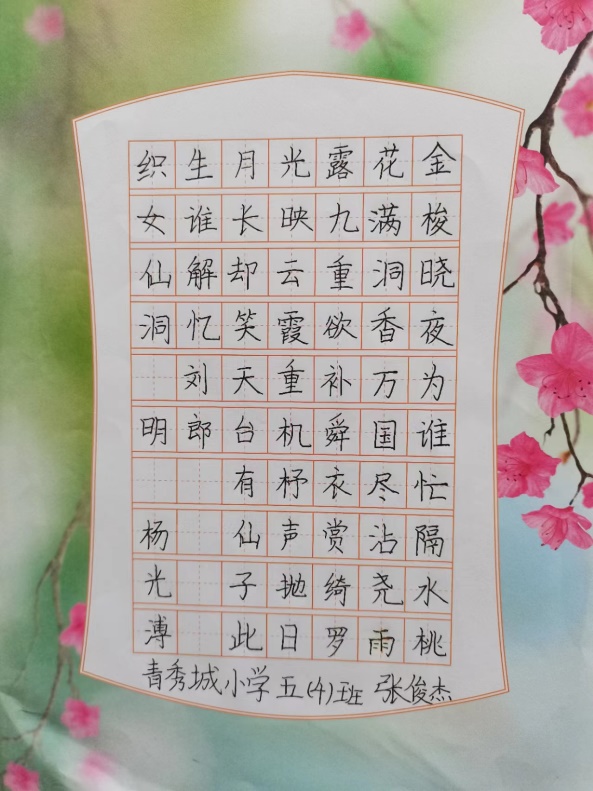 金梭晓夜为谁忙隔水桃
花满洞香万国尽沾尧雨
露九重欲补舜衣赏绮罗
光映云霞重机杼声抛日
月长却笑天台有仙子此
生谁解忆刘郎
织女仙洞 明 杨光溥
青秀城小学五(4)班 张俊杰